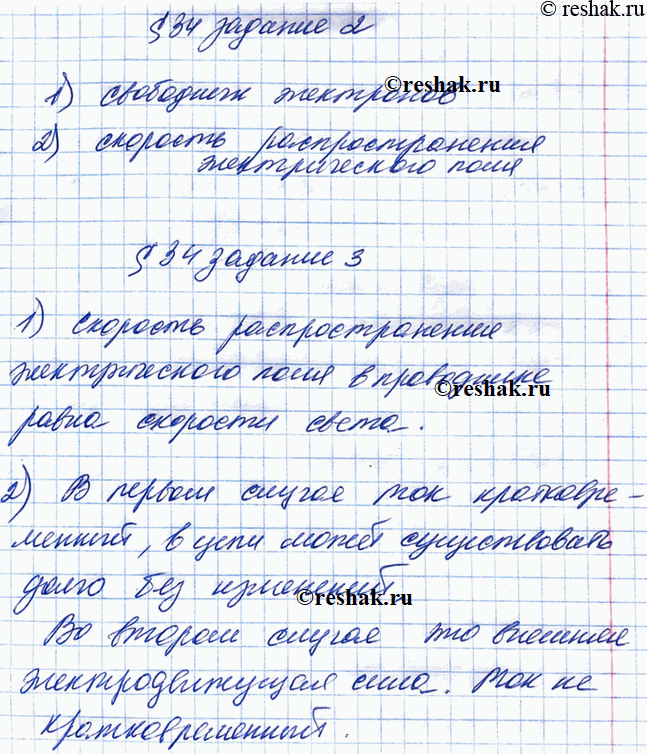 ©reshak.ru
§ 34 задание 2
1) свободных электронов
©reshak.ru
2) скорость распространения
электрического поля
§ 34 задание 3
1) скорость распространения
электрического поля в проводнике
©reshak.ru
равна скорости света.
2) В первом случае ток кратковре-
менный, в цепи может существовать
долго без изменений
©reshak.ru
Во втором случае это внешняя
электродвижущая сила. Ток не
кратковременный.